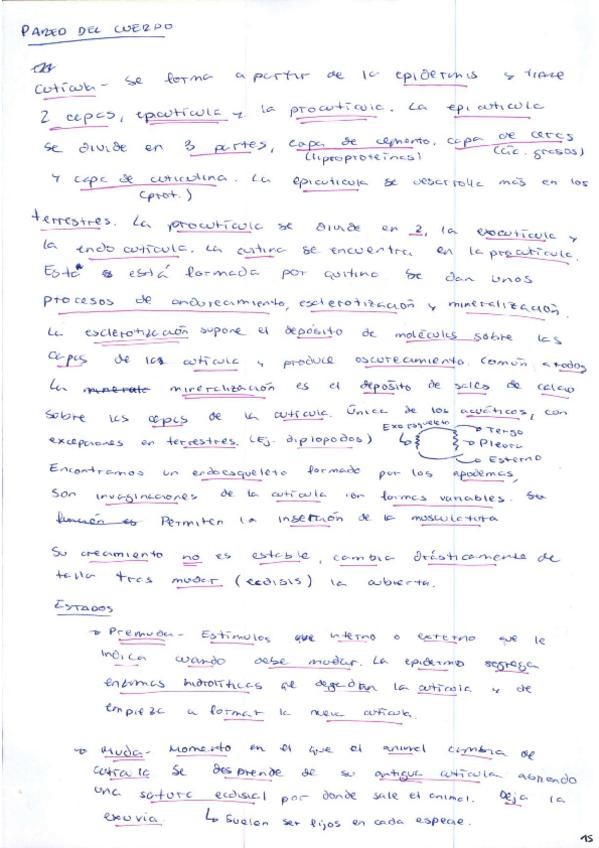 PARED DEL CUERPO
Cutícula - Se forma a partir de la epidermis y tiene
2 capas, epicutícula y la procutícula. La epicutícula
se divide en 3 partes, capa de cemento, capa de ceras
(lipoproteínas) (ác. grasos)
y capa de cuticulina. La epicutícula se desarrolla más en los
(prot.)
terrestres. La procutícula se divide en 2, la exocutícula y
la endocutícula. La quitina se encuentra en la procutícula.
Esta está formada por quitina. Se dan unos
procesos de endurecimiento, esclerotización y mineralización.
La esclerotización supone el depósito de moléculas sobre las
capas de la cutícula y produce oscurecimiento. Común a todos
La mineralización es el depósito de sales de calcio
sobre las capas de la cutícula. Única de los acuáticos, con
excepciones en terrestres. (Ej. diplopodos)
Exoesqueleto
Tergo
Pleura
Esterno
Encontramos un endoesqueleto formado por los apodemas,
son invaginaciones de la cutícula con formas variables. Su
función es Permiten la inserción de la musculatura
Su crecimiento no es estable, cambia drásticamente de
talla tras mudar (ecdisis) la cubierta.
ESTADOS
→ Premuda - Estímulos que interno o externo que le
indica cuando debe mudar. La epidermis segrega
enzimas hidrolíticas que degradan la cutícula y de
empieza a formar la nueva cutícula.
→ Muda - Momento en el que el animal cambia de
cutícula se desprende de su antigua cutícula abriendo
una sutura ecdisial por donde sale el animal. Deja la
exuvia. ↳ Suelen ser fijos en cada especie.
15